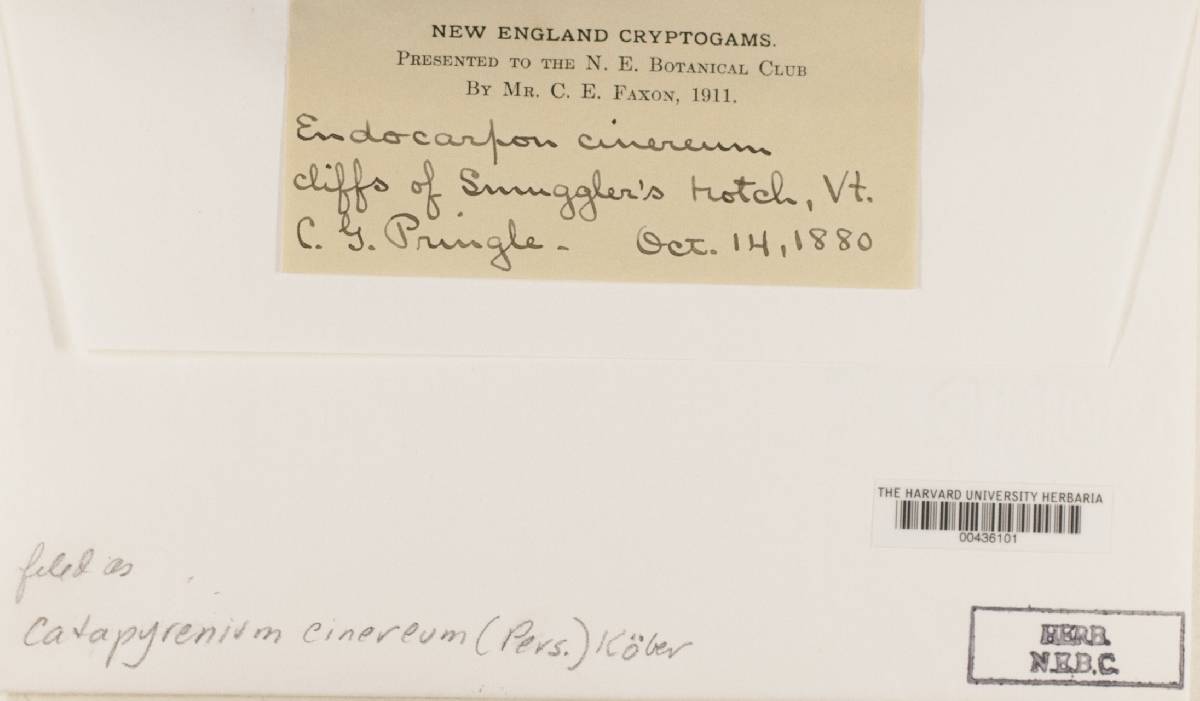 NEW ENGLAND CRYPTOGAMS.
PRESENTED TO THE N. E. BOTANICAL CLUB
BY MR. C. E. FAXON, 1911.
Endocarpon cinereum
cliffs of Smuggler's Notch, Vt.
C. G. Pringle - Oct. 14, 1880
THE HARVARD UNIVERSITY HERBARIA
00436101
filed as
Catapyrenium cinereum (Pers.) Köber
HERB.
N.E.B.C.